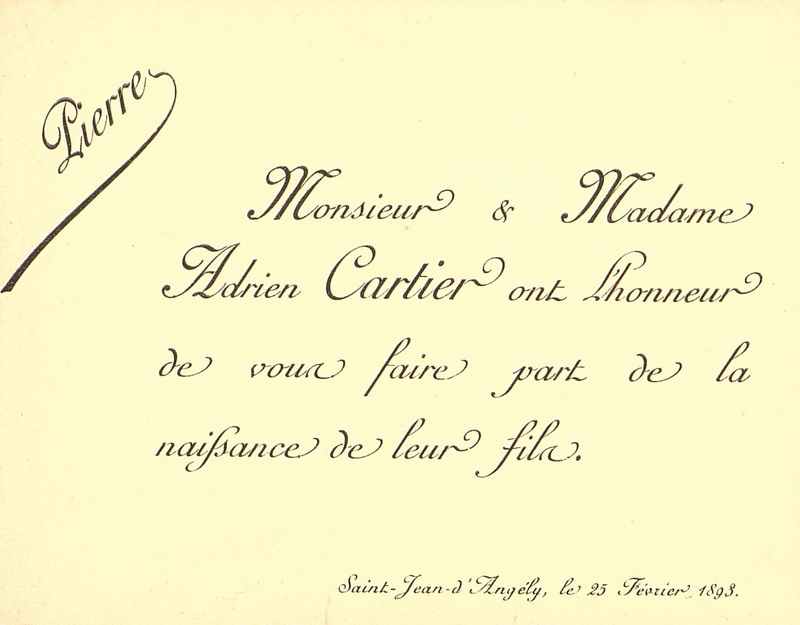 Pierre
Monsieur & Madame
Adrien Cartier ont l'honneur
de vous faire part de la
naissance de leur fils.
Saint-Jean-d'Angély, le 25 Février 1893.